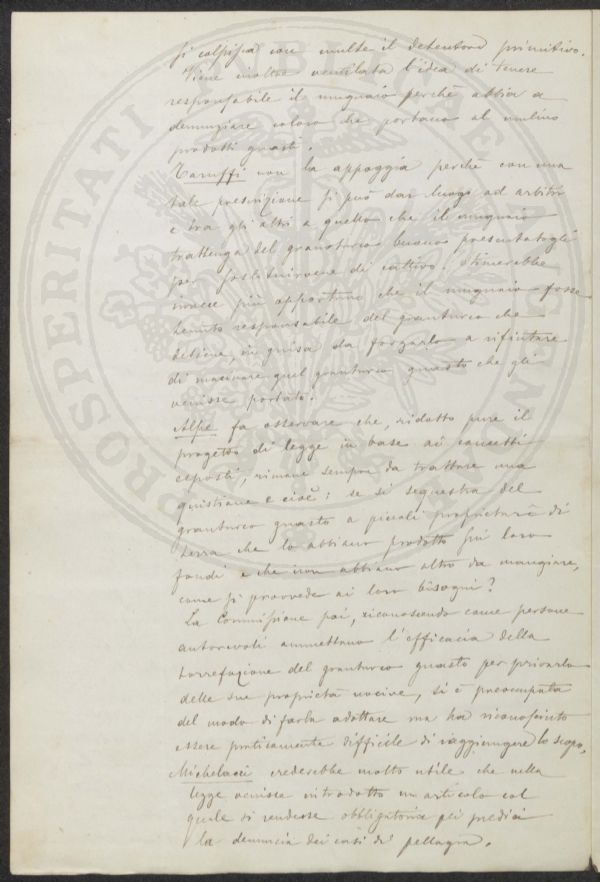 si colpisca con multe il detentore primitivo.
Viene inoltre ventilata l'idea di tenere
responsabile il mugnaio perchè abbia a
denunziare coloro che portano al mulino
prodotti guasti.
Taruffi non la appoggia perchè con una
tale prescrizione si può dar luogo ad arbitri
e tra gli altri a quello che il mugnaio
trattenga del granoturco buono presentatogli
per sostituirvene di cattivo. Stimerebbe
invece più opportuno che il mugnaio fosse
tenuto responsabile del granturco che
detiene, in guisa da forzarlo a rifiutare
di macinare quel granturco guasto che gli
venisse portato.
Alpe fa osservare che, ridotto pure il
progetto di legge in base ai concetti
esposti, rimane sempre da trattare una
quistione e cioè: se si sequestra del
granturco guasto a piccoli proprietari di
terra che lo abbiano prodotto sui loro
fondi e che non abbiano altro da mangiare,
come si provvede ai loro bisogni?
La Commissione poi, riconoscendo come persone
autorevoli ammettano l'efficacia della
torrefazione del granturco guasto per privarlo
delle sue proprietà nocive, si è preoccupata
del modo di farla adottare ma ha riconosciuto
essere praticamente difficile di raggiungere lo scopo.
Michelacci crederebbe molto utile che nella
legge venisse introdotto un articolo col
quale si rendesse obbligatoria pei medici
la denuncia dei casi di pellagra.
PROSPERITATI PUBLICAE